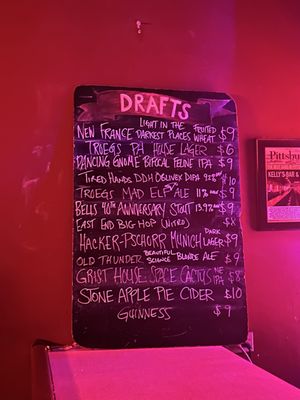 DRAFTS
NEW FRANCE LIGHT IN THE DARKEST PLACES FRUITED WHEAT $9
TROEGS PA HOUSE LAGER $6
DANCING GNOME BIFOCAL FELINE IPA $9
TIRED HANDS DDH OBLIVEX DIPA $10
TROEGS MAD ELF ALE 11% $9
BELLS 40TH ANNIVERSARY STOUT
EAST END BIG HOP (NITRO)
HACKER-PSCHORR MUNICH DARK LAGER $9
OLD THUNDER BEAUTIFUL SCIENCE BLONDE ALE
GRIST HOUSE SPACE CACTUS NE IPA $8
STONE APPLE PIE CIDER $10
GUINNESS $9
Pittsbu
KELLY'S BAR &